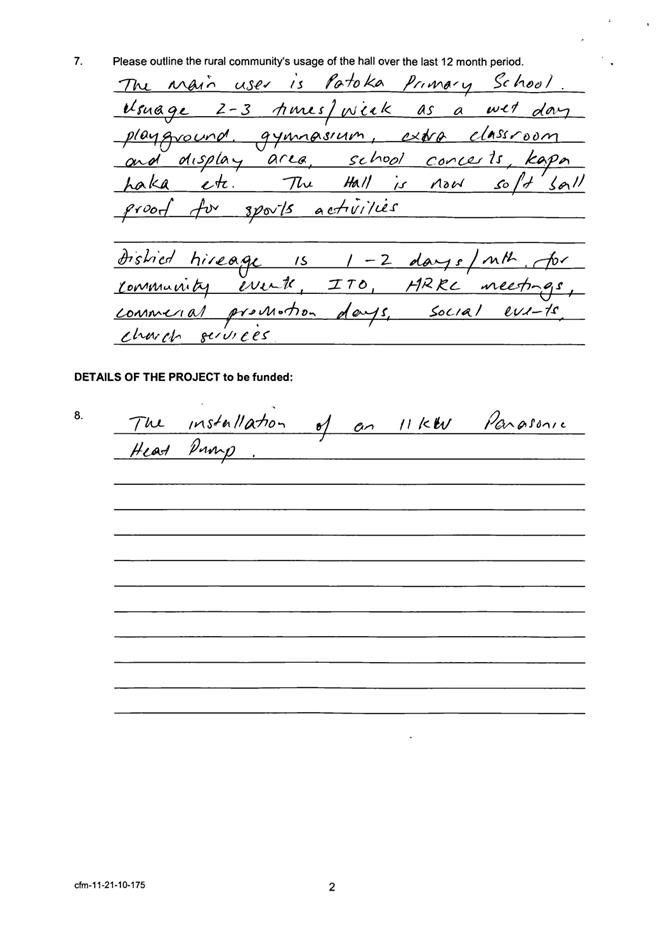 7. Please outline the rural community's usage of the hall over the last 12 month period.
The main user is Patoka Primary School.
Usuage 2-3 times/week as a wet day
playground, gymnasium, extra classroom
and display area, school concerts, kapa
haka etc. The Hall is now soft ball
proof for sports activities
District hireage is 1-2 days/mth. for
community events, ITO, HRRC meetings,
commercial promotion days, social events,
church services
DETAILS OF THE PROJECT to be funded:
8. The installation of an 11 KW Panasonic
Heat Pump.
cfm-11-21-10-175
2